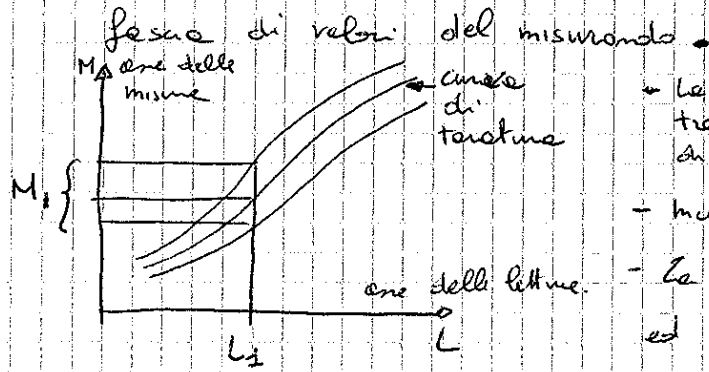 fascia di valori del misurando
M asse delle
misure
curva
di
taratura
M1
asse delle letture.
L1
L
- La
-
- La
ed